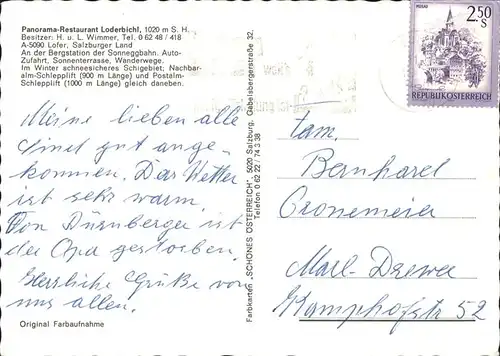 Panorama-Restaurant Loderbichl, 1020 m S. H.
Besitzer: H. u. L. Wimmer, Tel. 0 62 48 / 418
A-5090 Lofer, Salzburger Land
An der Bergstation der Sonneggbahn. Auto-
Zufahrt, Sonnenterrasse, Wanderwege.
Im Winter schneesicheres Schigebiet; Nachbar-
alm-Schlepplift (900 m Länge) und Postalm-
Schlepplift (1000 m Länge) gleich daneben.
Meine lieben alle
Sind gut ange-
kommen. Das Wetter
ist sehr warm.
Von Dürnberger ist
der Opa gestorben.
Herzliche Grüße von
uns allen.
Original Farbaufnahme
Farbkarten „SCHÖNES ÖSTERREICH", 5020 Salzburg, Gabelsbergerstraße 32,
Telefon 0 62 22 / 74 3 38
2.50
S
REPUBLIK ÖSTERREICH
Fam.
Bernhard
Cronemeier
Marl-Drewer
Kamphofstr 52